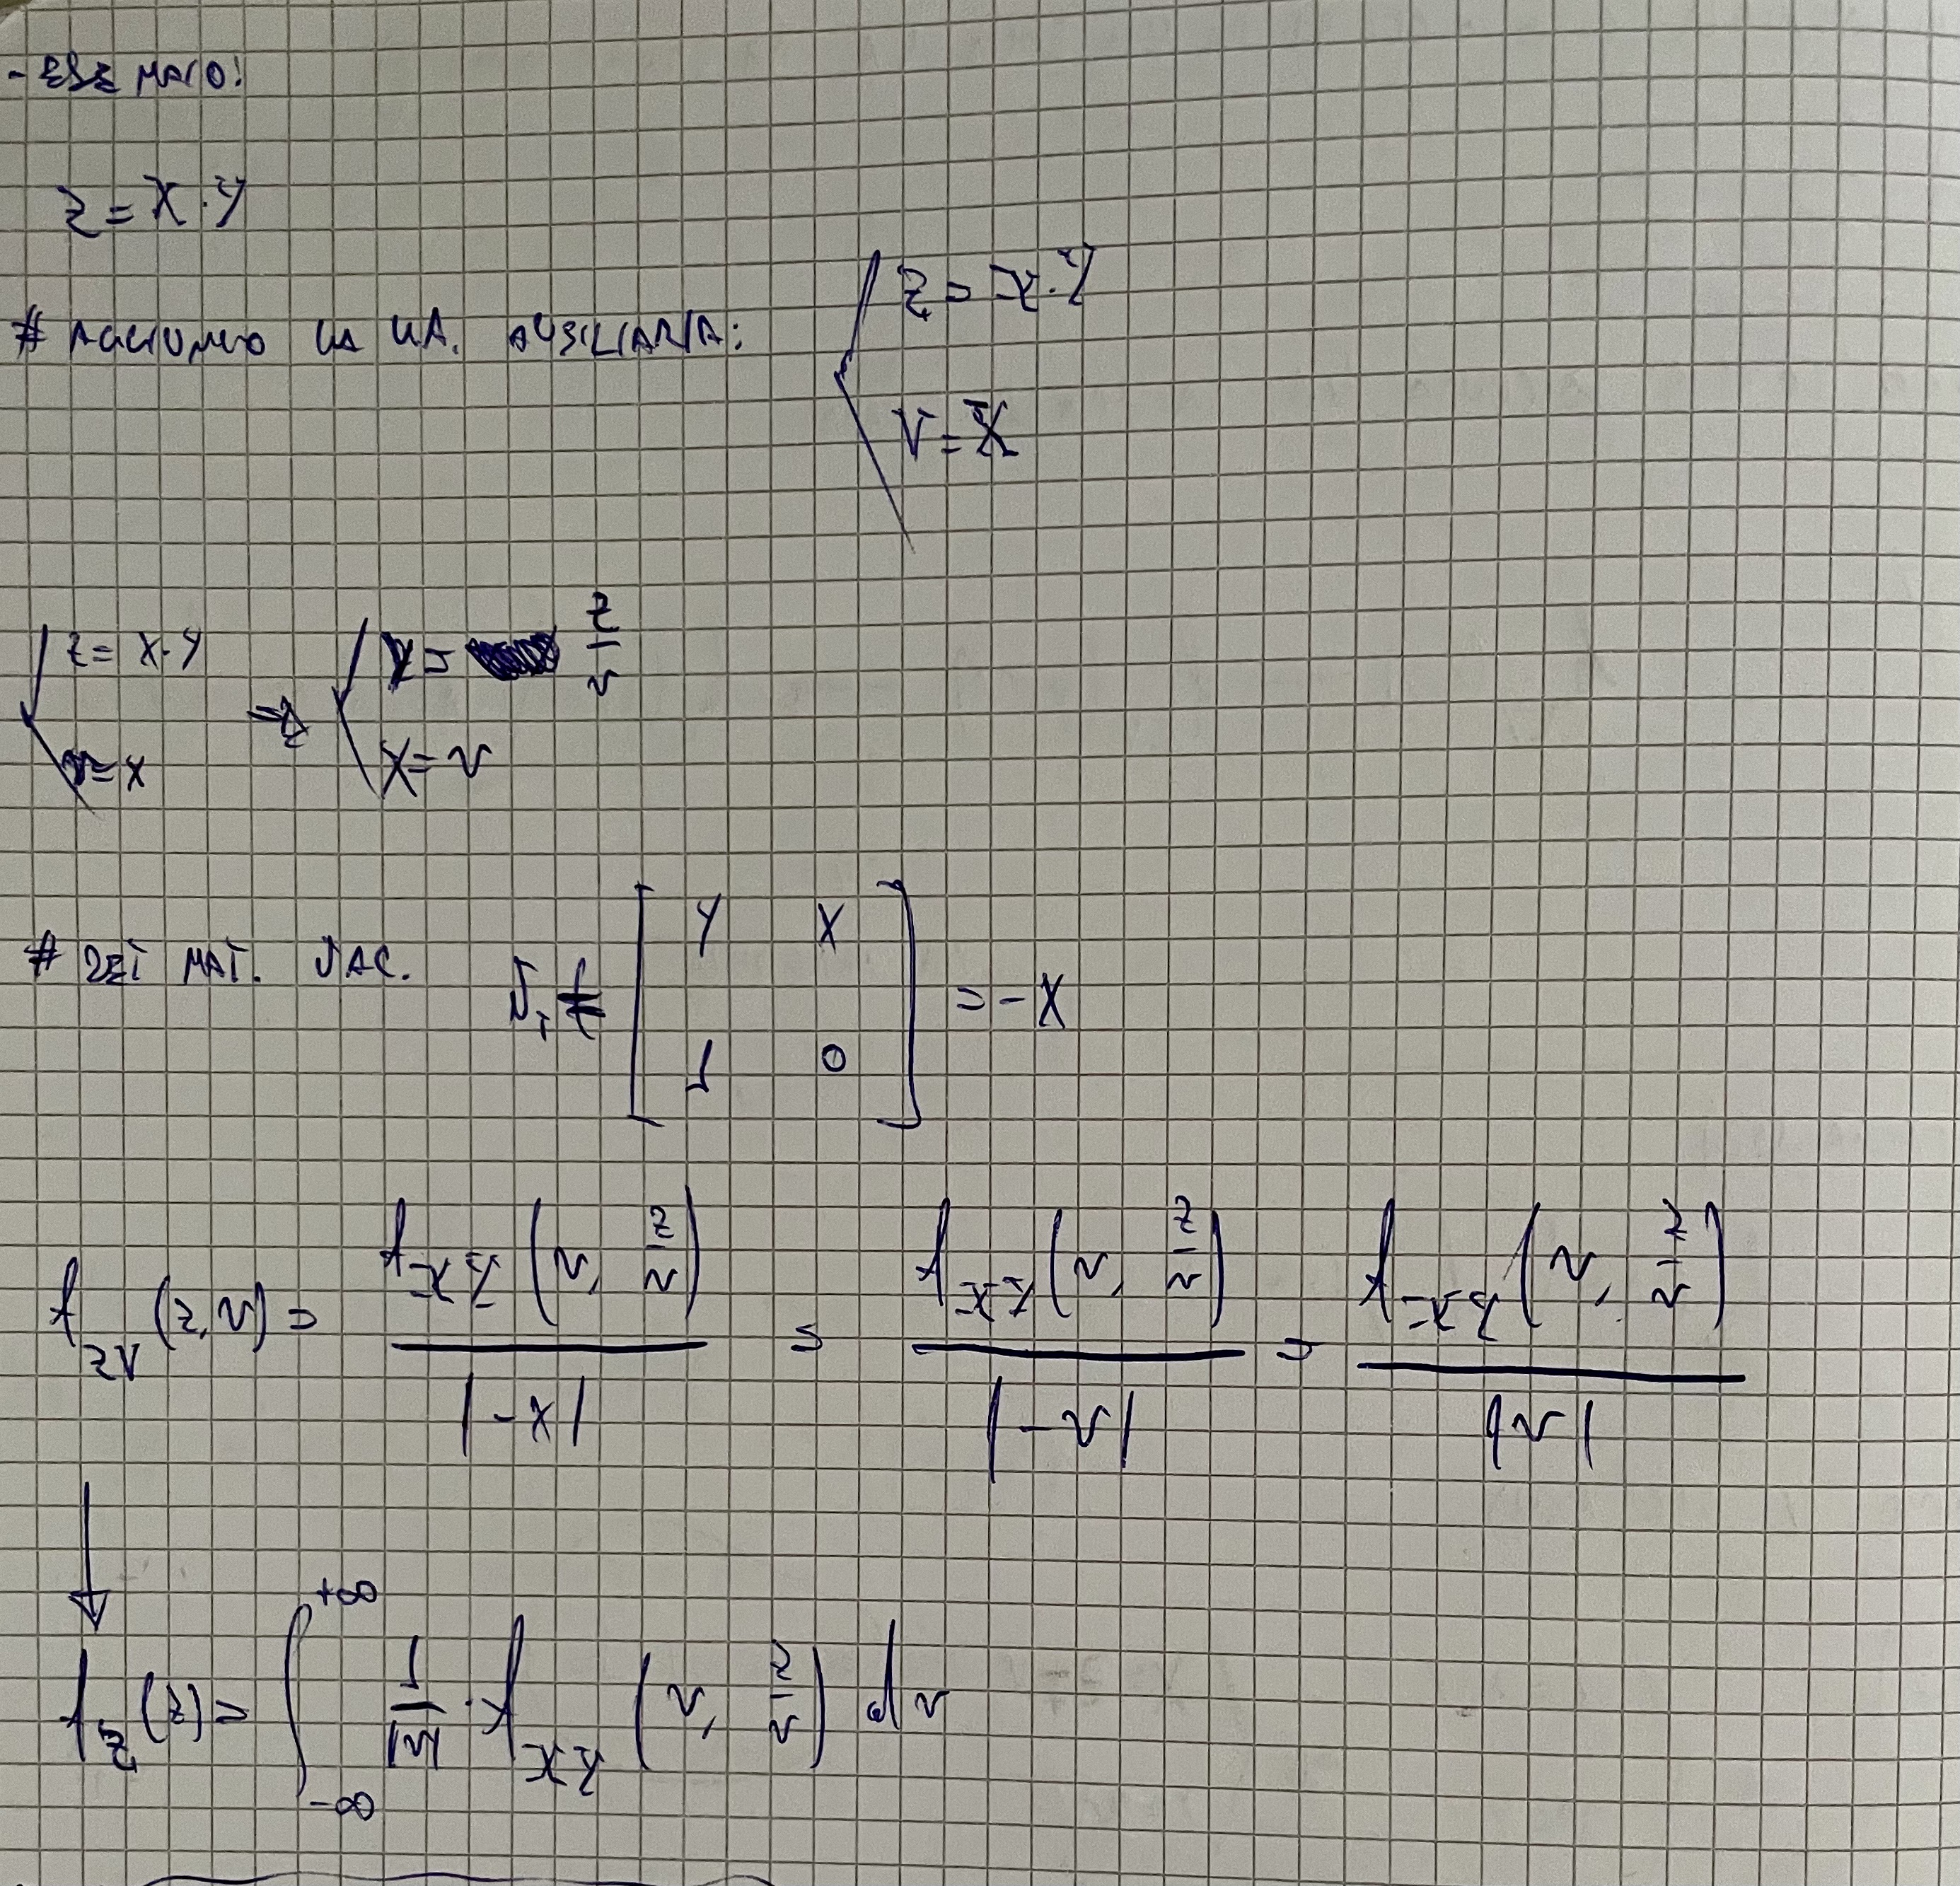 - ESEMPIO:
Z = X · Y
# AGGIUNGO LA V.A. AUSILIARIA: { Z = X · Y
V = X
{ z = x · y ⇒ { y = z/v
v = x x = v
# DET MAT. JAC. J_T = [ y x ; 1 0 ] = - x
f_ZV (z, v) = f_XY (v, z/v) / |-x| = f_XY (v, z/v) / |-v| = f_XY (v, z/v) / |v|
↓
f_Z (z) = ∫_{-∞}^{+∞} 1/|v| · f_XY (v, z/v) dv